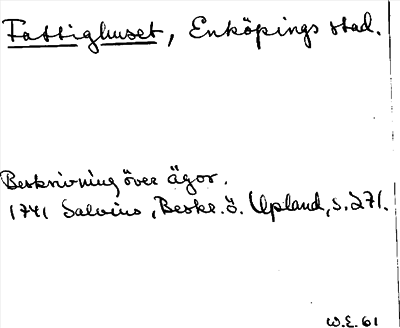 Fattighuset, Enköpings stad.
Beskrivning över ägor.
1741 Salvius, Beskr. ö. Upland, s. 271.
W.E. 61